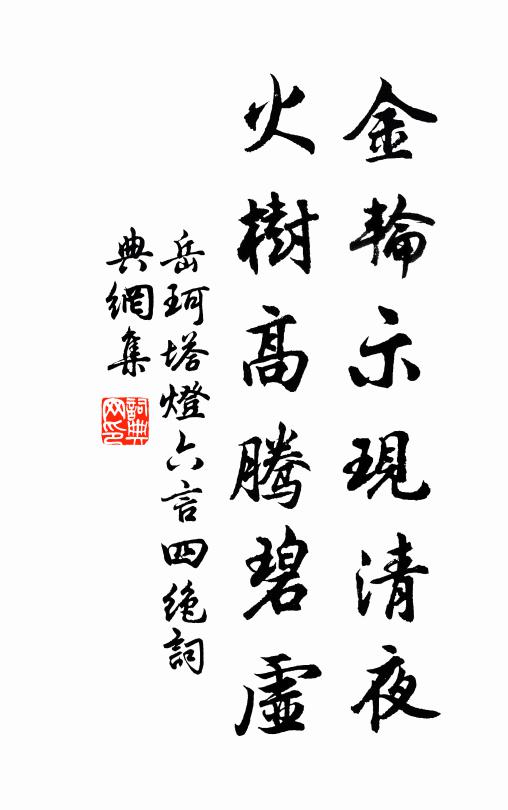 金輪示現清夜
火樹高騰碧虛
岳珂塔燈六言四絶詞
典網集
詞典網印